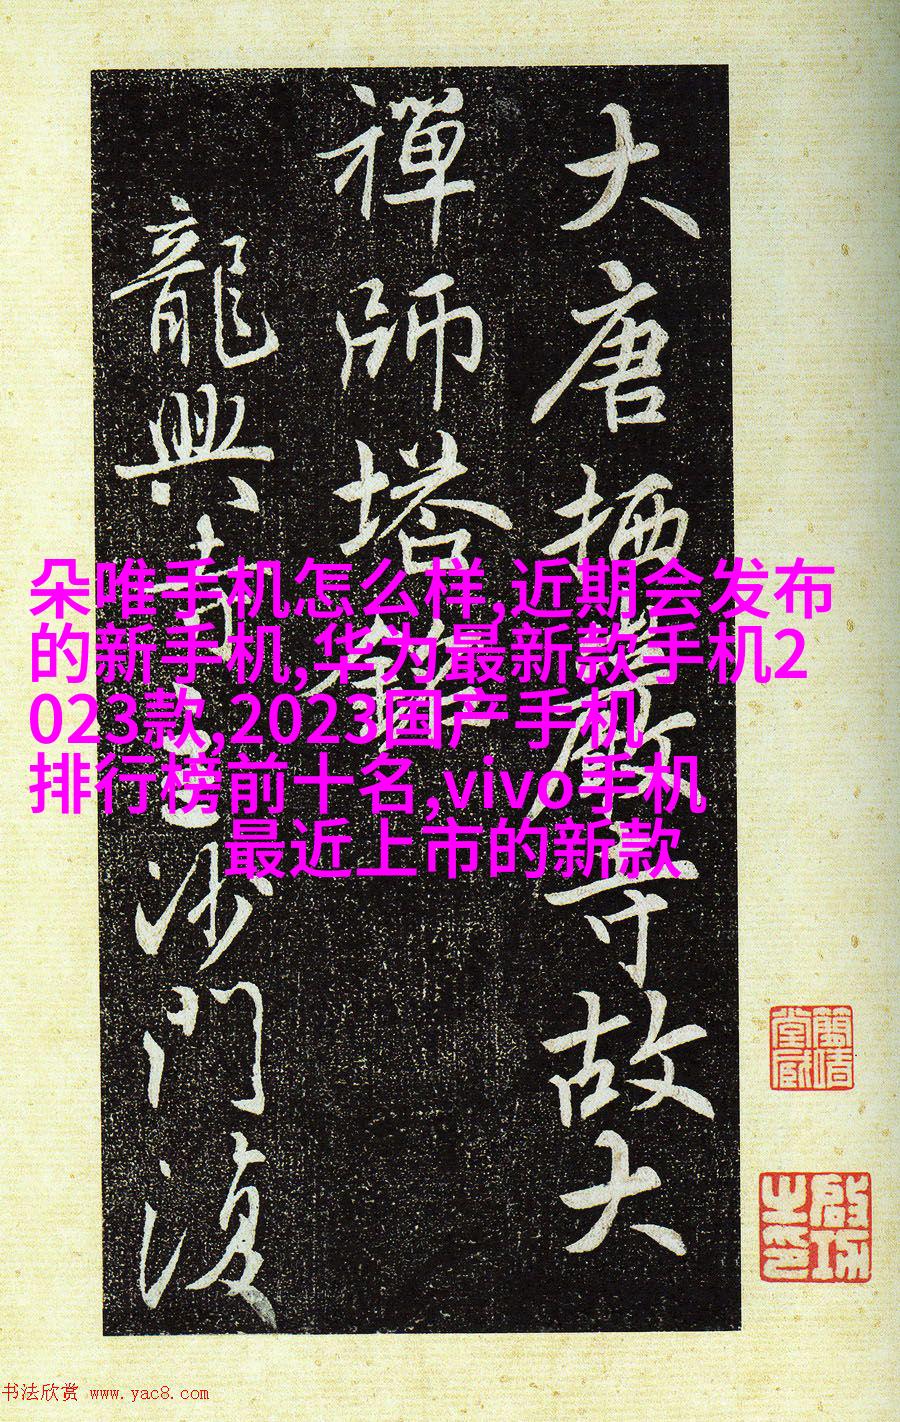 大唐栖霞寺故大
禪師塔銘
龍興寺沙門復
朵唯手机怎么样,近期会发布
的新手机,华为最新款手机2
023款,2023国产手机
排行榜前十名,vivo手机
最近上市的新款
蘭晴堂藏
啟功之印
书法欣赏 www.yac8.com